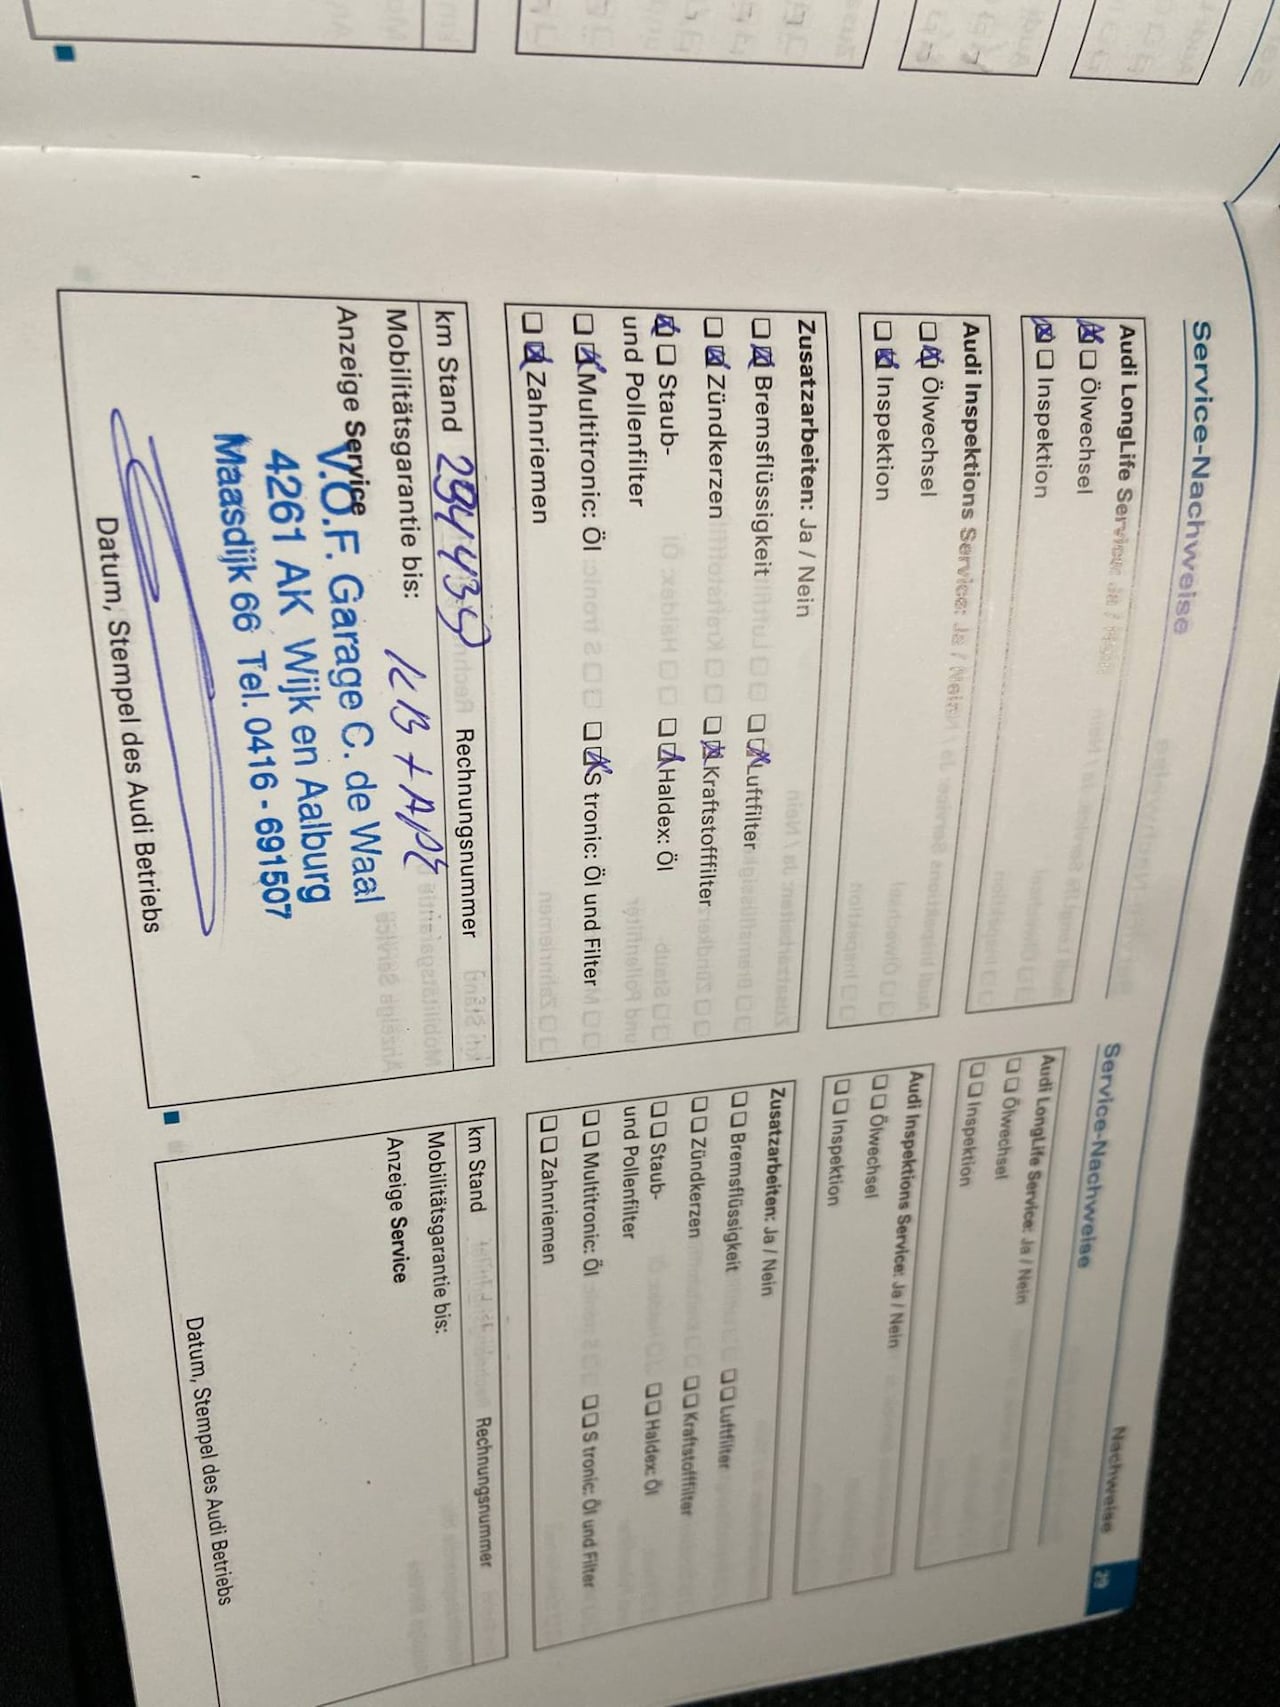 Service-Nachweise
Audi LongLife Service: Ja / Nein
Ölwechsel
Inspektion
Audi Inspektions Service: Ja / Nein
Ölwechsel
Inspektion
Zusatzarbeiten: Ja / Nein
Bremsflüssigkeit Luftfilter
Zündkerzen Kraftstofffilter
Staub- Haldex: Öl
und Pollenfilter
Multitronic: Öl S tronic: Öl und Filter
Zahnriemen
km Stand Rechnungsnummer
Mobilitätsgarantie bis: KB + APK
Anzeige Service
V.O.F. Garage C. de Waal
4261 AK Wijk en Aalburg
Maasdijk 66 Tel. 0416 - 691507
Datum, Stempel des Audi Betriebs
Nachweise 29
Service-Nachweise
Audi LongLife Service: Ja / Nein
Ölwechsel
Inspektion
Audi Inspektions Service: Ja / Nein
Ölwechsel
Inspektion
Zusatzarbeiten: Ja / Nein
Bremsflüssigkeit Luftfilter
Zündkerzen Kraftstofffilter
Staub- Haldex: Öl
und Pollenfilter
Multitronic: Öl S tronic: Öl und Filter
Zahnriemen
km Stand Rechnungsnummer
Mobilitätsgarantie bis:
Anzeige Service
Datum, Stempel des Audi Betriebs